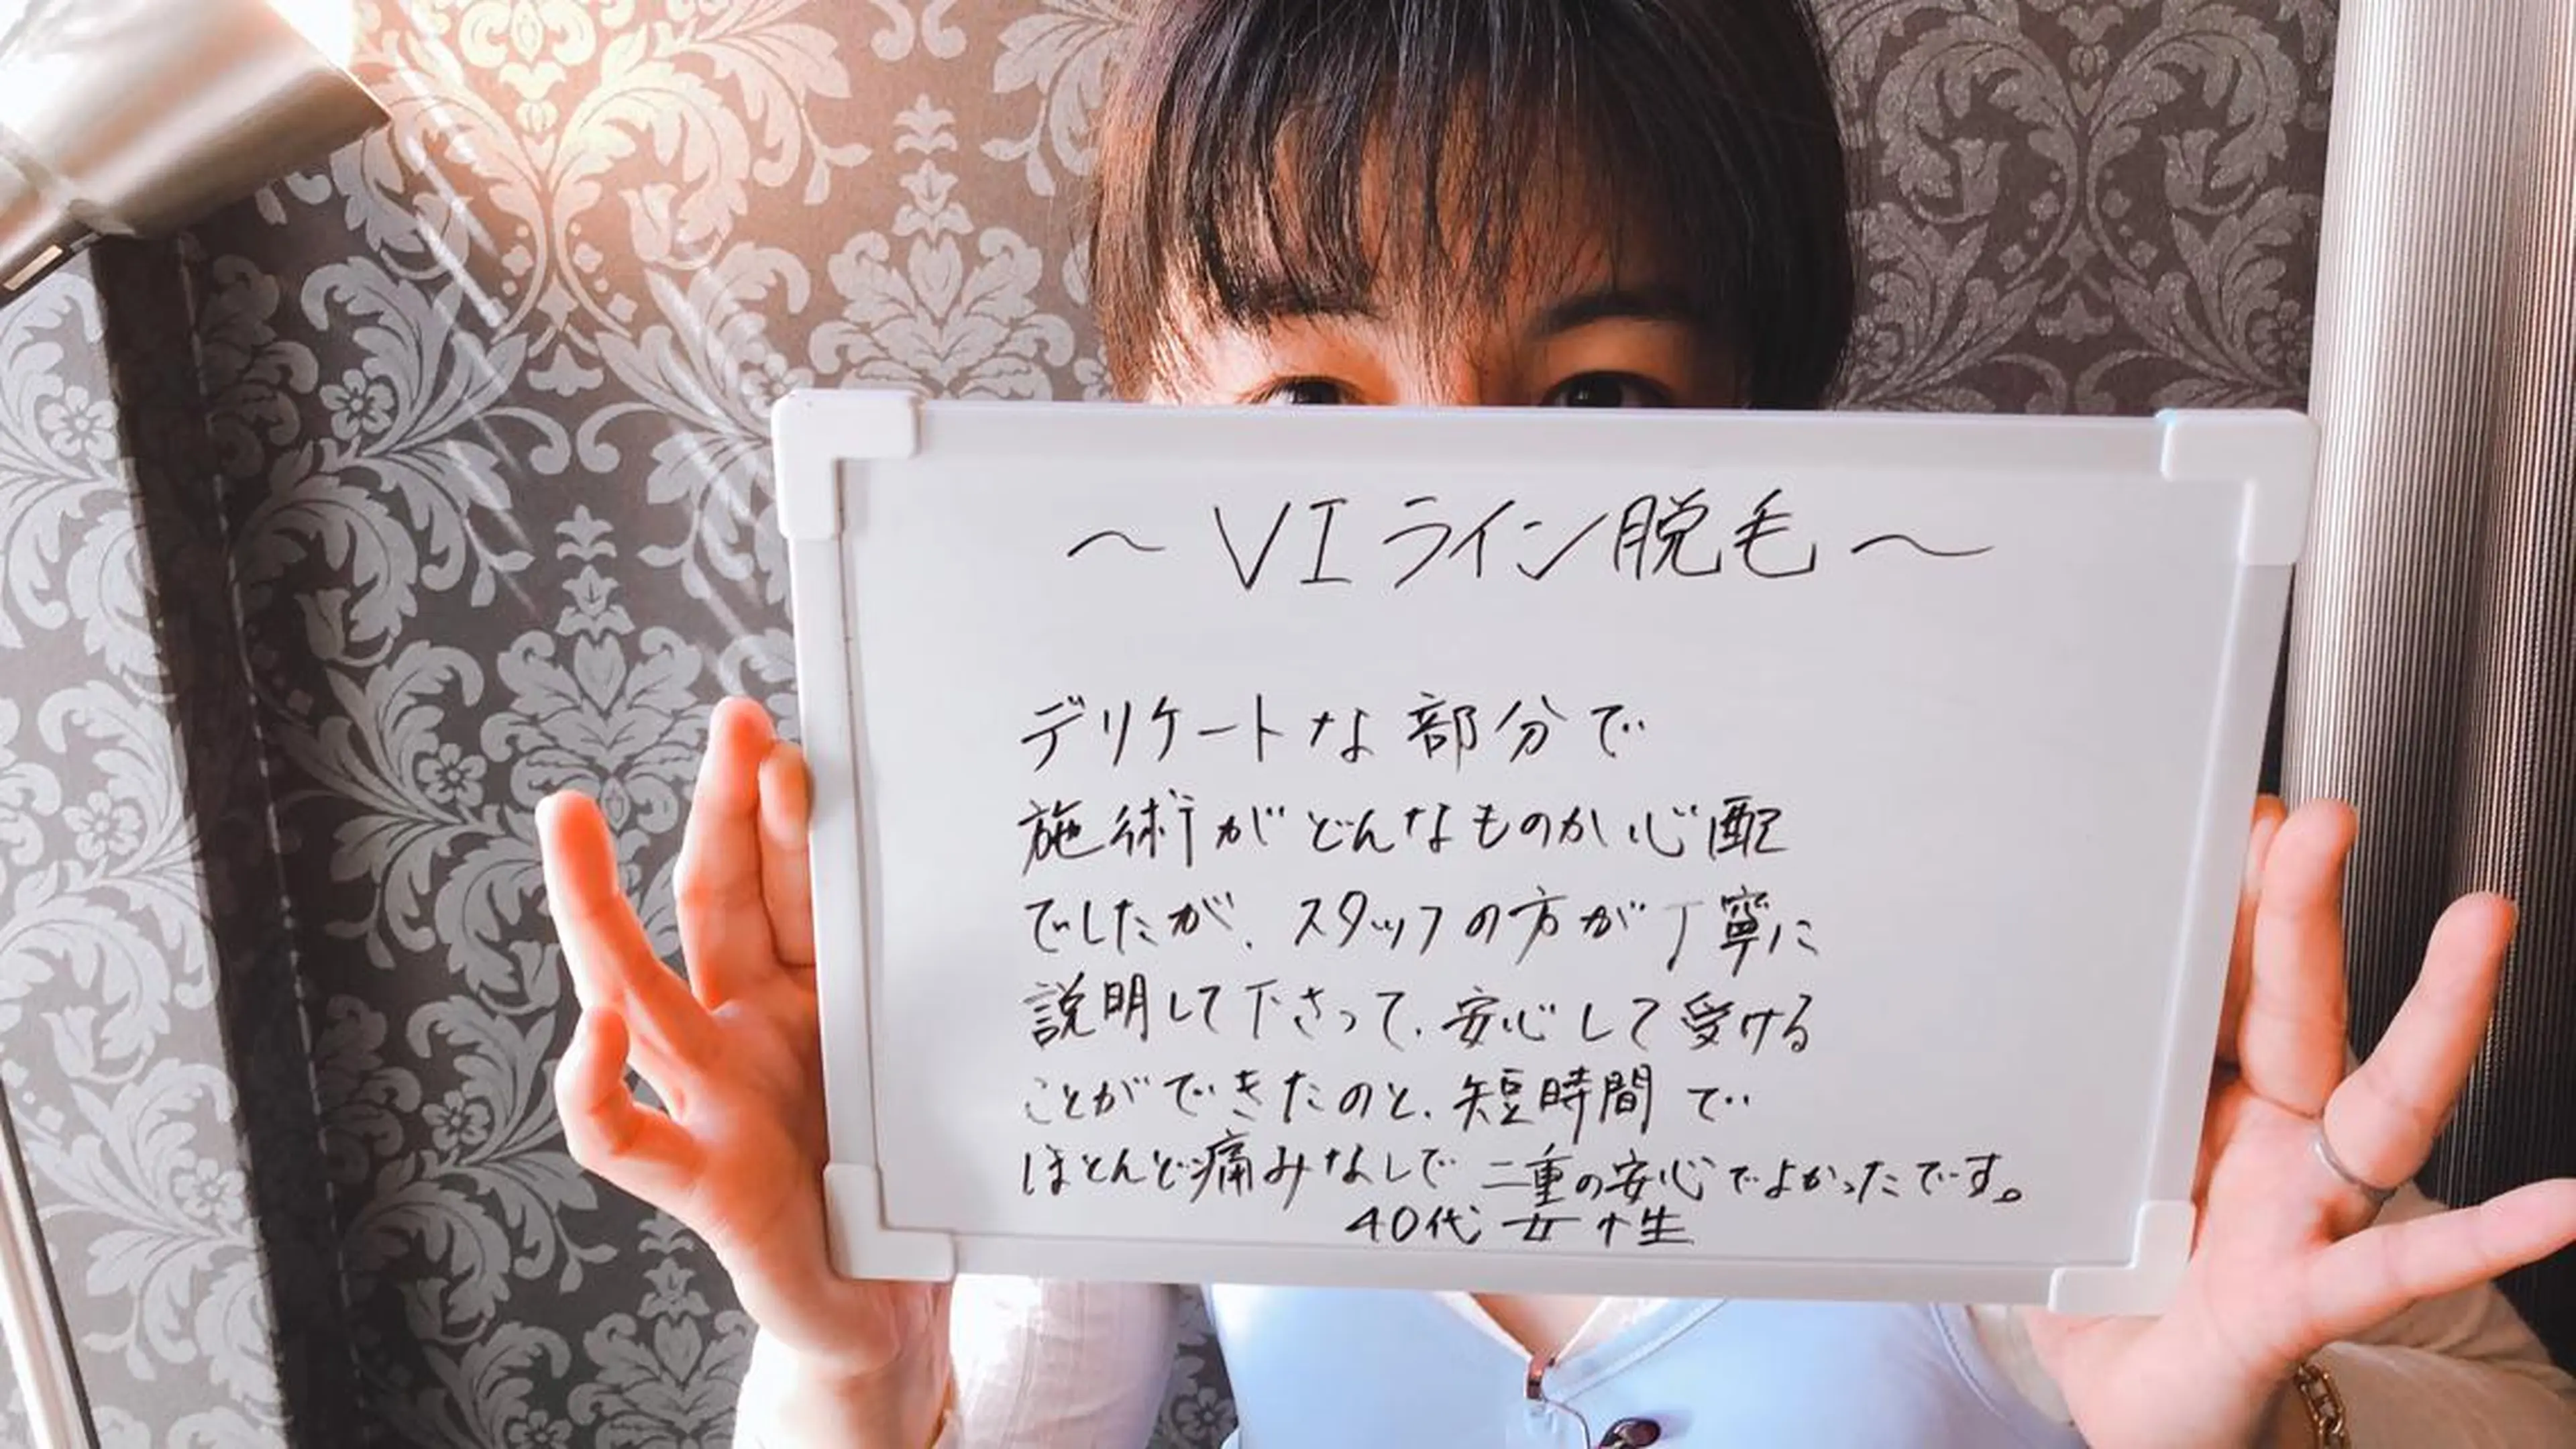 ～VIライン脱毛～
デリケートな部分で
施術がどんなものか心配
でしたが、スタッフの方が丁寧に
説明して下さって、安心して受ける
ことができたのと、短時間で
ほとんど痛みなしで二重の安心でよかったです。
40代女性